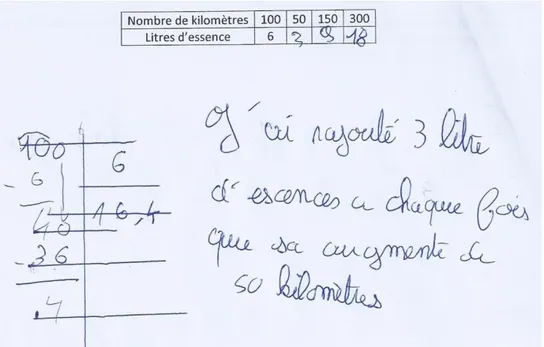 Nombre de kilomètres 100 50 150 300
Litres d'essence 6 3 9 18
J'ai rajouté 3 litre
d'escences a chaque fois
que sa augmente de
50 kilomètres
100 6
- 6
40 16,4
- 36
4